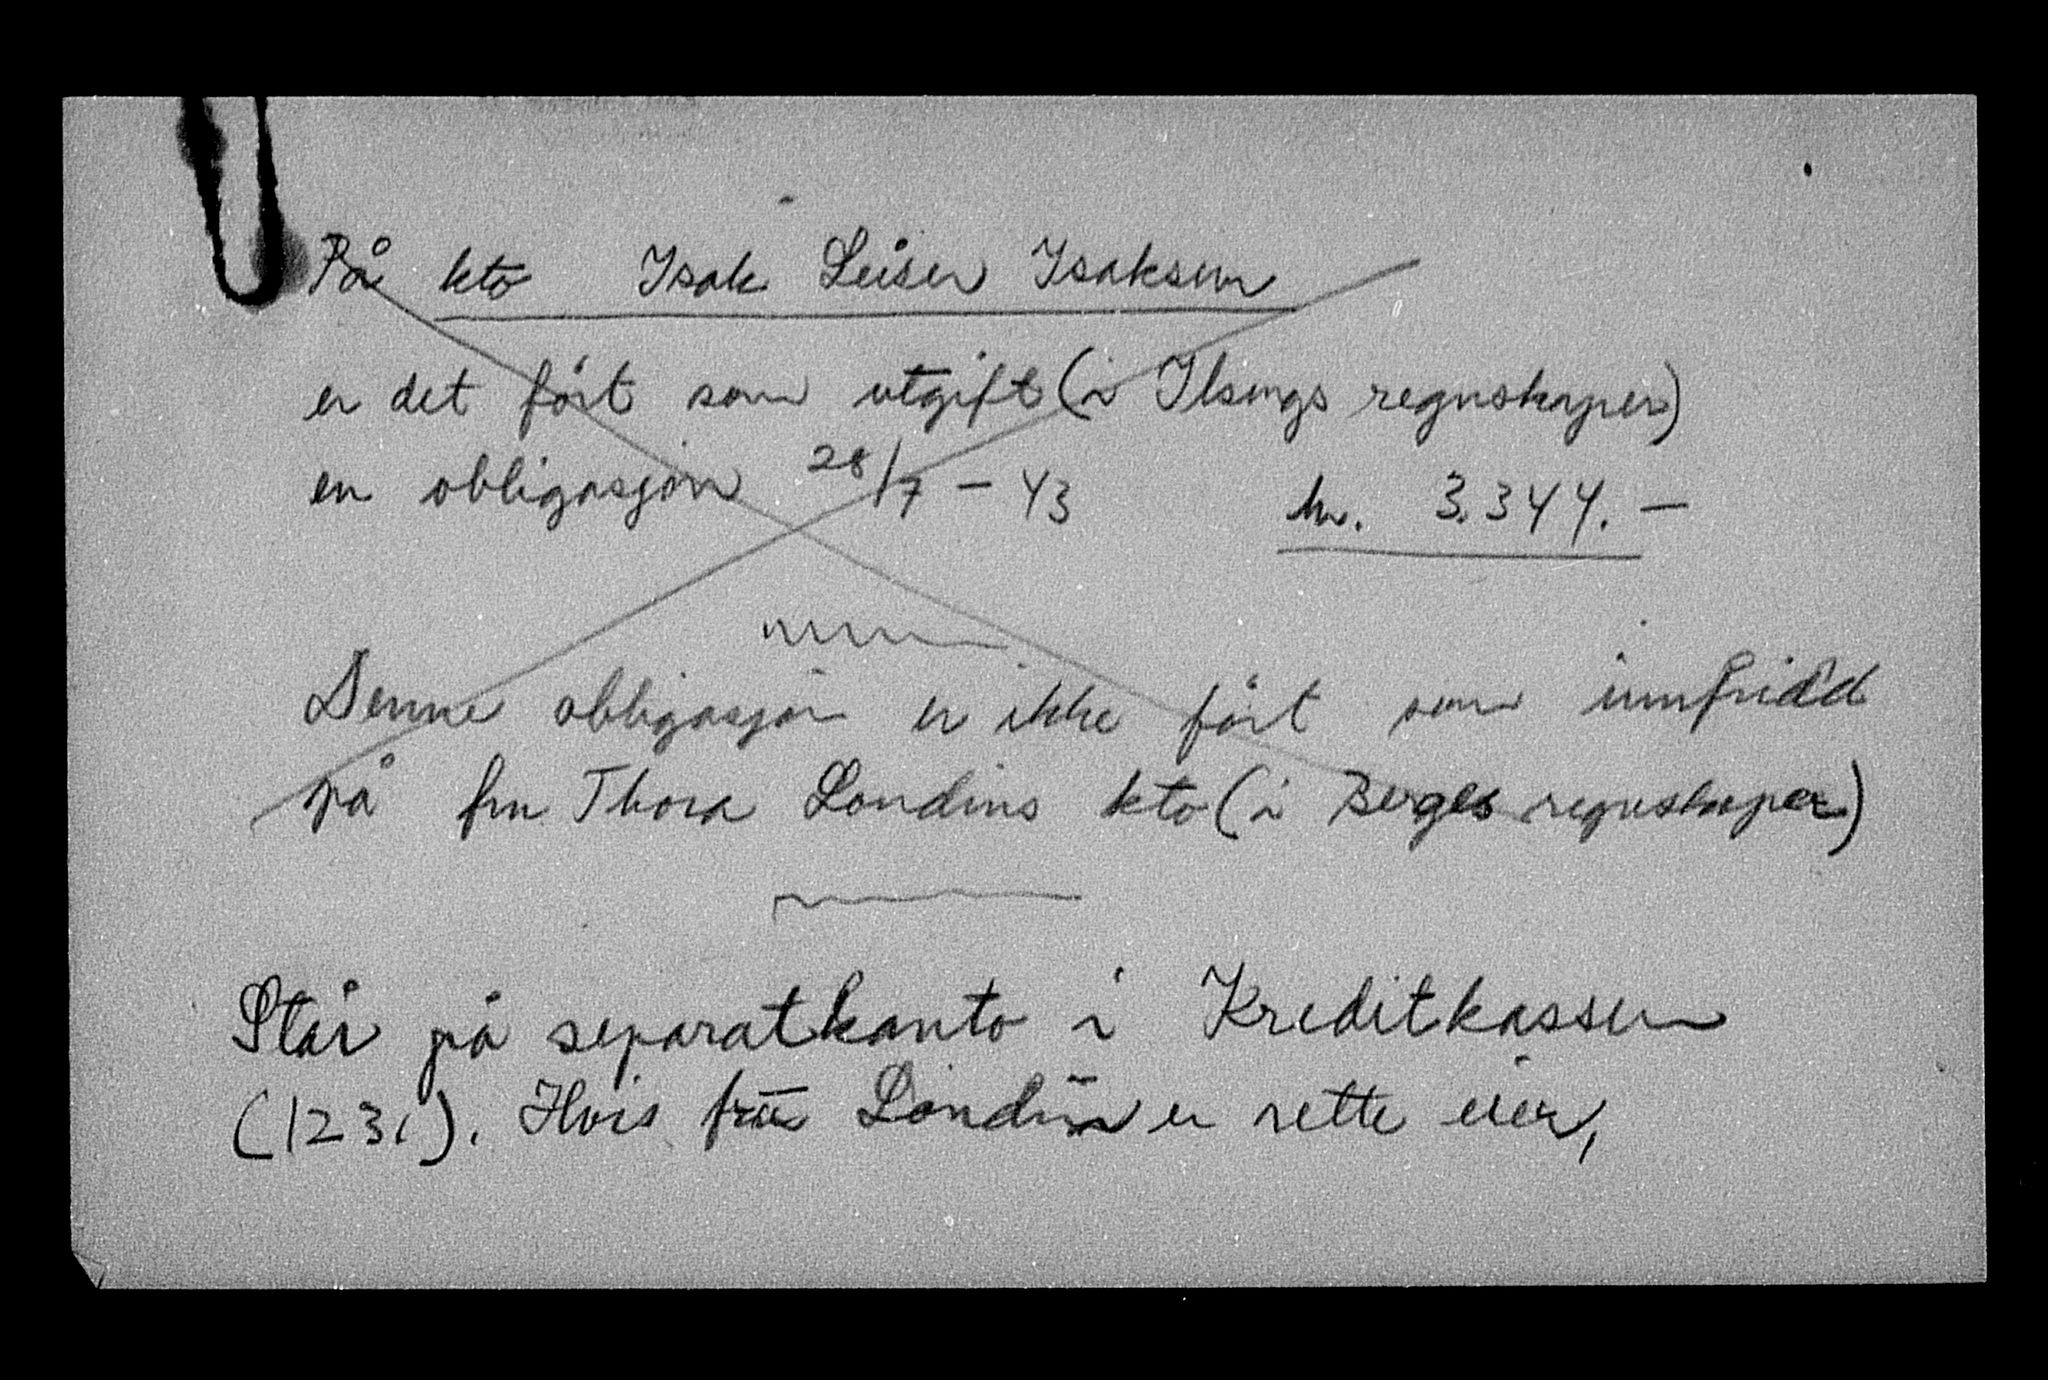 På kto Isak Leiser Isaksen
er det ført som utgift (i Ilsengs regnskaper)
en obligasjon 28/7 - 43 kr. 3.344. -
Denne obligasjon er ikke ført som innfridd
på fru Thora Londins kto (i Berges regnskaper)
Står på separatkonto i Kreditkassen
(1231). Hvis fru Londin er rette eier,